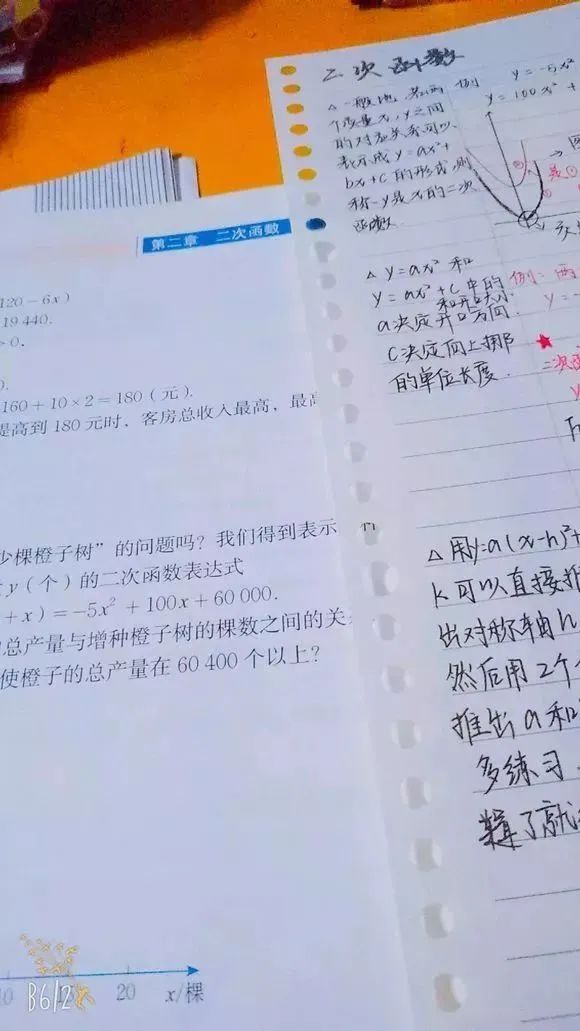 第二章 二次函数
120-6x)
19 440.
>0.
0.
160+10×2=180(元).
提高到180元时，客房总收入最高，最高
少棵橙子树”的问题吗？我们得到表示
y(个)的二次函数表达式
+x)=-5x²+100x+60 000.
总产量与增种橙子树的棵数之间的关
使橙子的总产量在60 400个以上？
10
20
x/棵
B612
二次函数
△一般地，若两
个变量x，y之间
的对应关系可以
表示成y=ax²+
bx+c的形式，则
称y是x的二次
函数
例
y=-5x²
y=100x²+
△y=ax²和
y=ax²+c中的
a决定开口方向
和开口大小
c决定向上挪
的单位长度.
例：两
y=-
★
二次函
y
△用y=a(x-h)²+
k可以直接推
出对称轴h
然后用2个
推出a和
多练习，